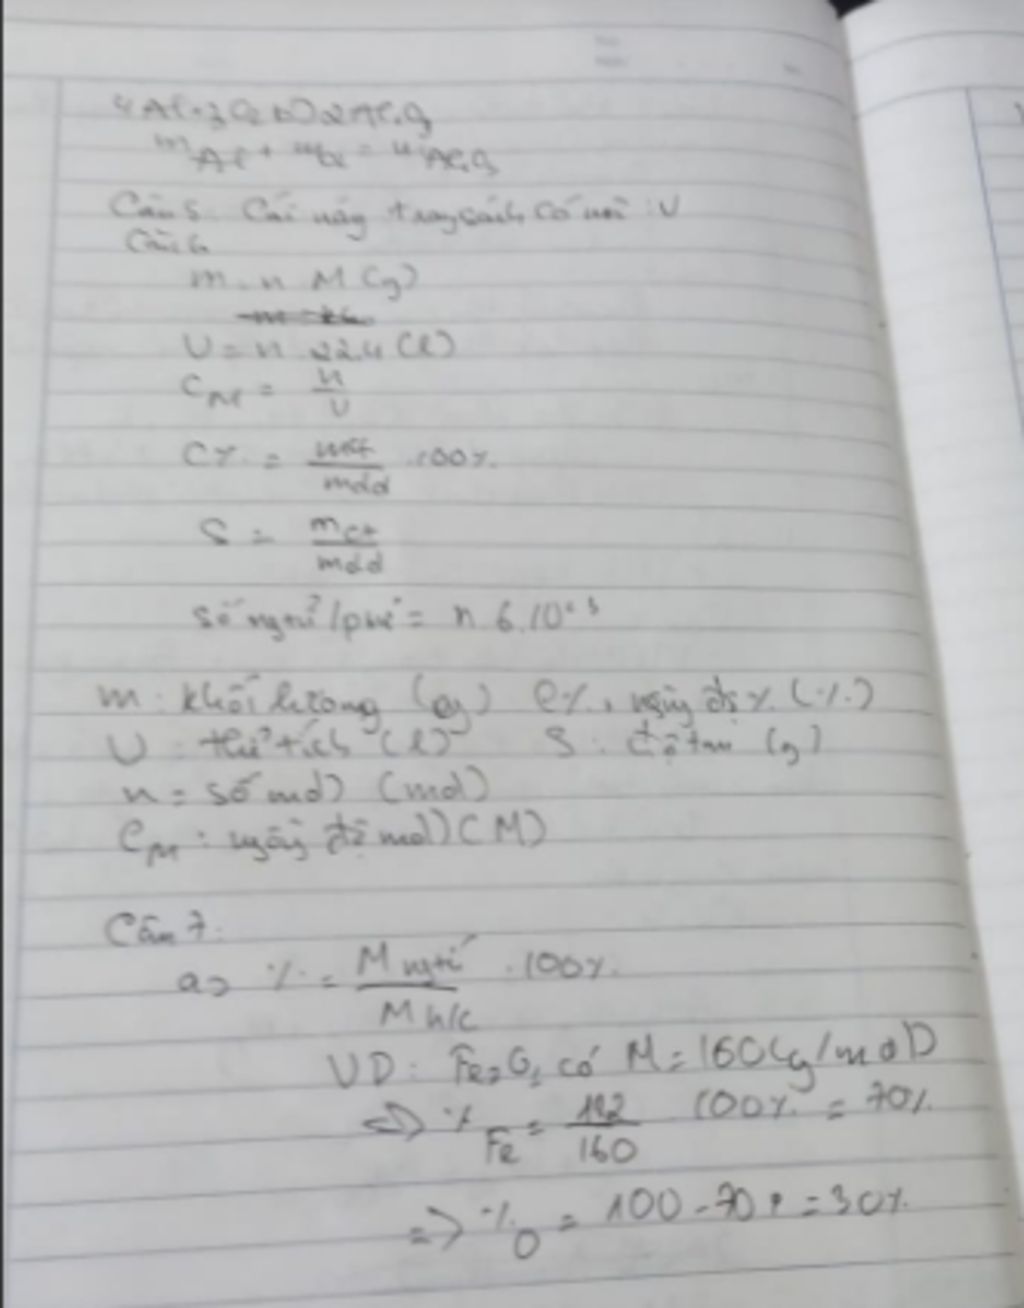 4Al+3O2 → 2Al2O3
mAl + mO2 = mAl2O3
Câu 5. Cái này trong sách có nói :V
Câu 6
m = n . M (g)
V = n . 22.4 (l)
CM = n / V
C% = mct / mdd . 100%
S = mct / mdd
số ngtử/ptử = n . 6.10²³
m : khối lượng (g) C% : nồng độ % (%)
V : thể tích (l) S : độ tan (g)
n = số mol (mol)
CM : nồng độ mol (M)
Câu 7:
a> % = M ngtố / M h/c . 100%
VD: Fe2O3 có M = 160 (g/mol)
=> % Fe = 112 / 160 . 100% = 70%
=> % O = 100 - 70 = 30%